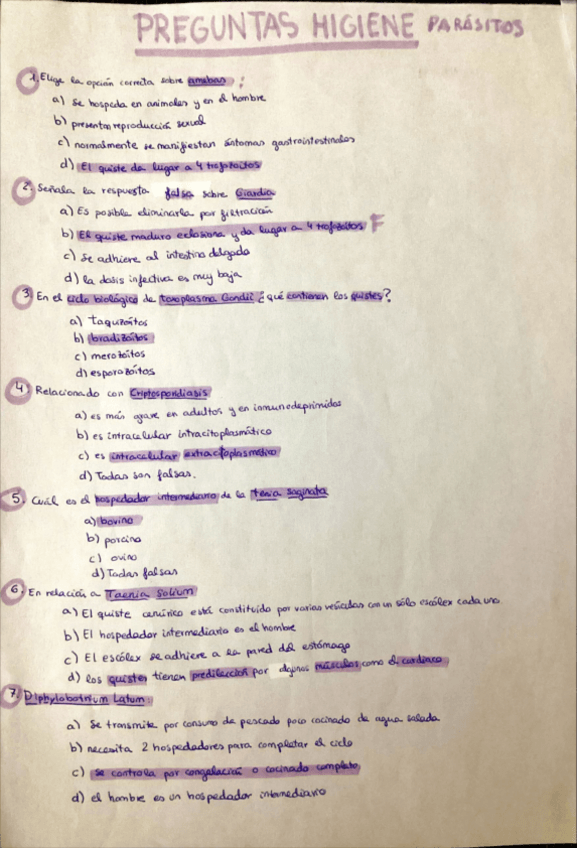 PREGUNTAS HIGIENE PARÁSITOS
1. Elige la opción correcta sobre amebas:
a) Se hospeda en animales y en el hombre
b) presenta reproducción sexual
c) normalmente se manifiestan síntomas gastrointestinales
d) El quiste da lugar a 4 trofozoitos
2. Señala la respuesta falsa sobre Giardia
a) Es posible eliminarla por filtración
b) El quiste maduro eclosiona y da lugar a 4 trofozoitos F
c) se adhiere al intestino delgado
d) la dosis infectiva es muy baja
3. En el ciclo biológico de toxoplasma Gondii ¿qué contienen los quistes?
a) taquizoítos
b) bradizoítos
c) merozoítos
d) esporozoítos
4. Relacionado con Criptosporidiasis
a) es más grave en adultos y en inmunodeprimidos
b) es intracelular intracitoplasmático
c) es intracelular extracitoplasmático
d) Todas son falsas.
5. Cuál es el hospedador intermediario de la tenia saginata
a) bovino
b) porcino
c) ovino
d) Todas falsas
6. En relación a Taenia Solium
a) El quiste cenúrico está constituido por varias vesículas con un sólo escólex cada una
b) El hospedador intermediario es el hombre
c) El escólex se adhiere a la pared del estómago
d) los quistes tienen predilección por algunos músculos como el cardiaco
7. Diphylobotrium Latum:
a) Se transmite por consumo de pescado poco cocinado de agua salada
b) necesita 2 hospedadores para completar el ciclo
c) se controla por congelación o cocinado completo
d) el hombre es un hospedador intermediario